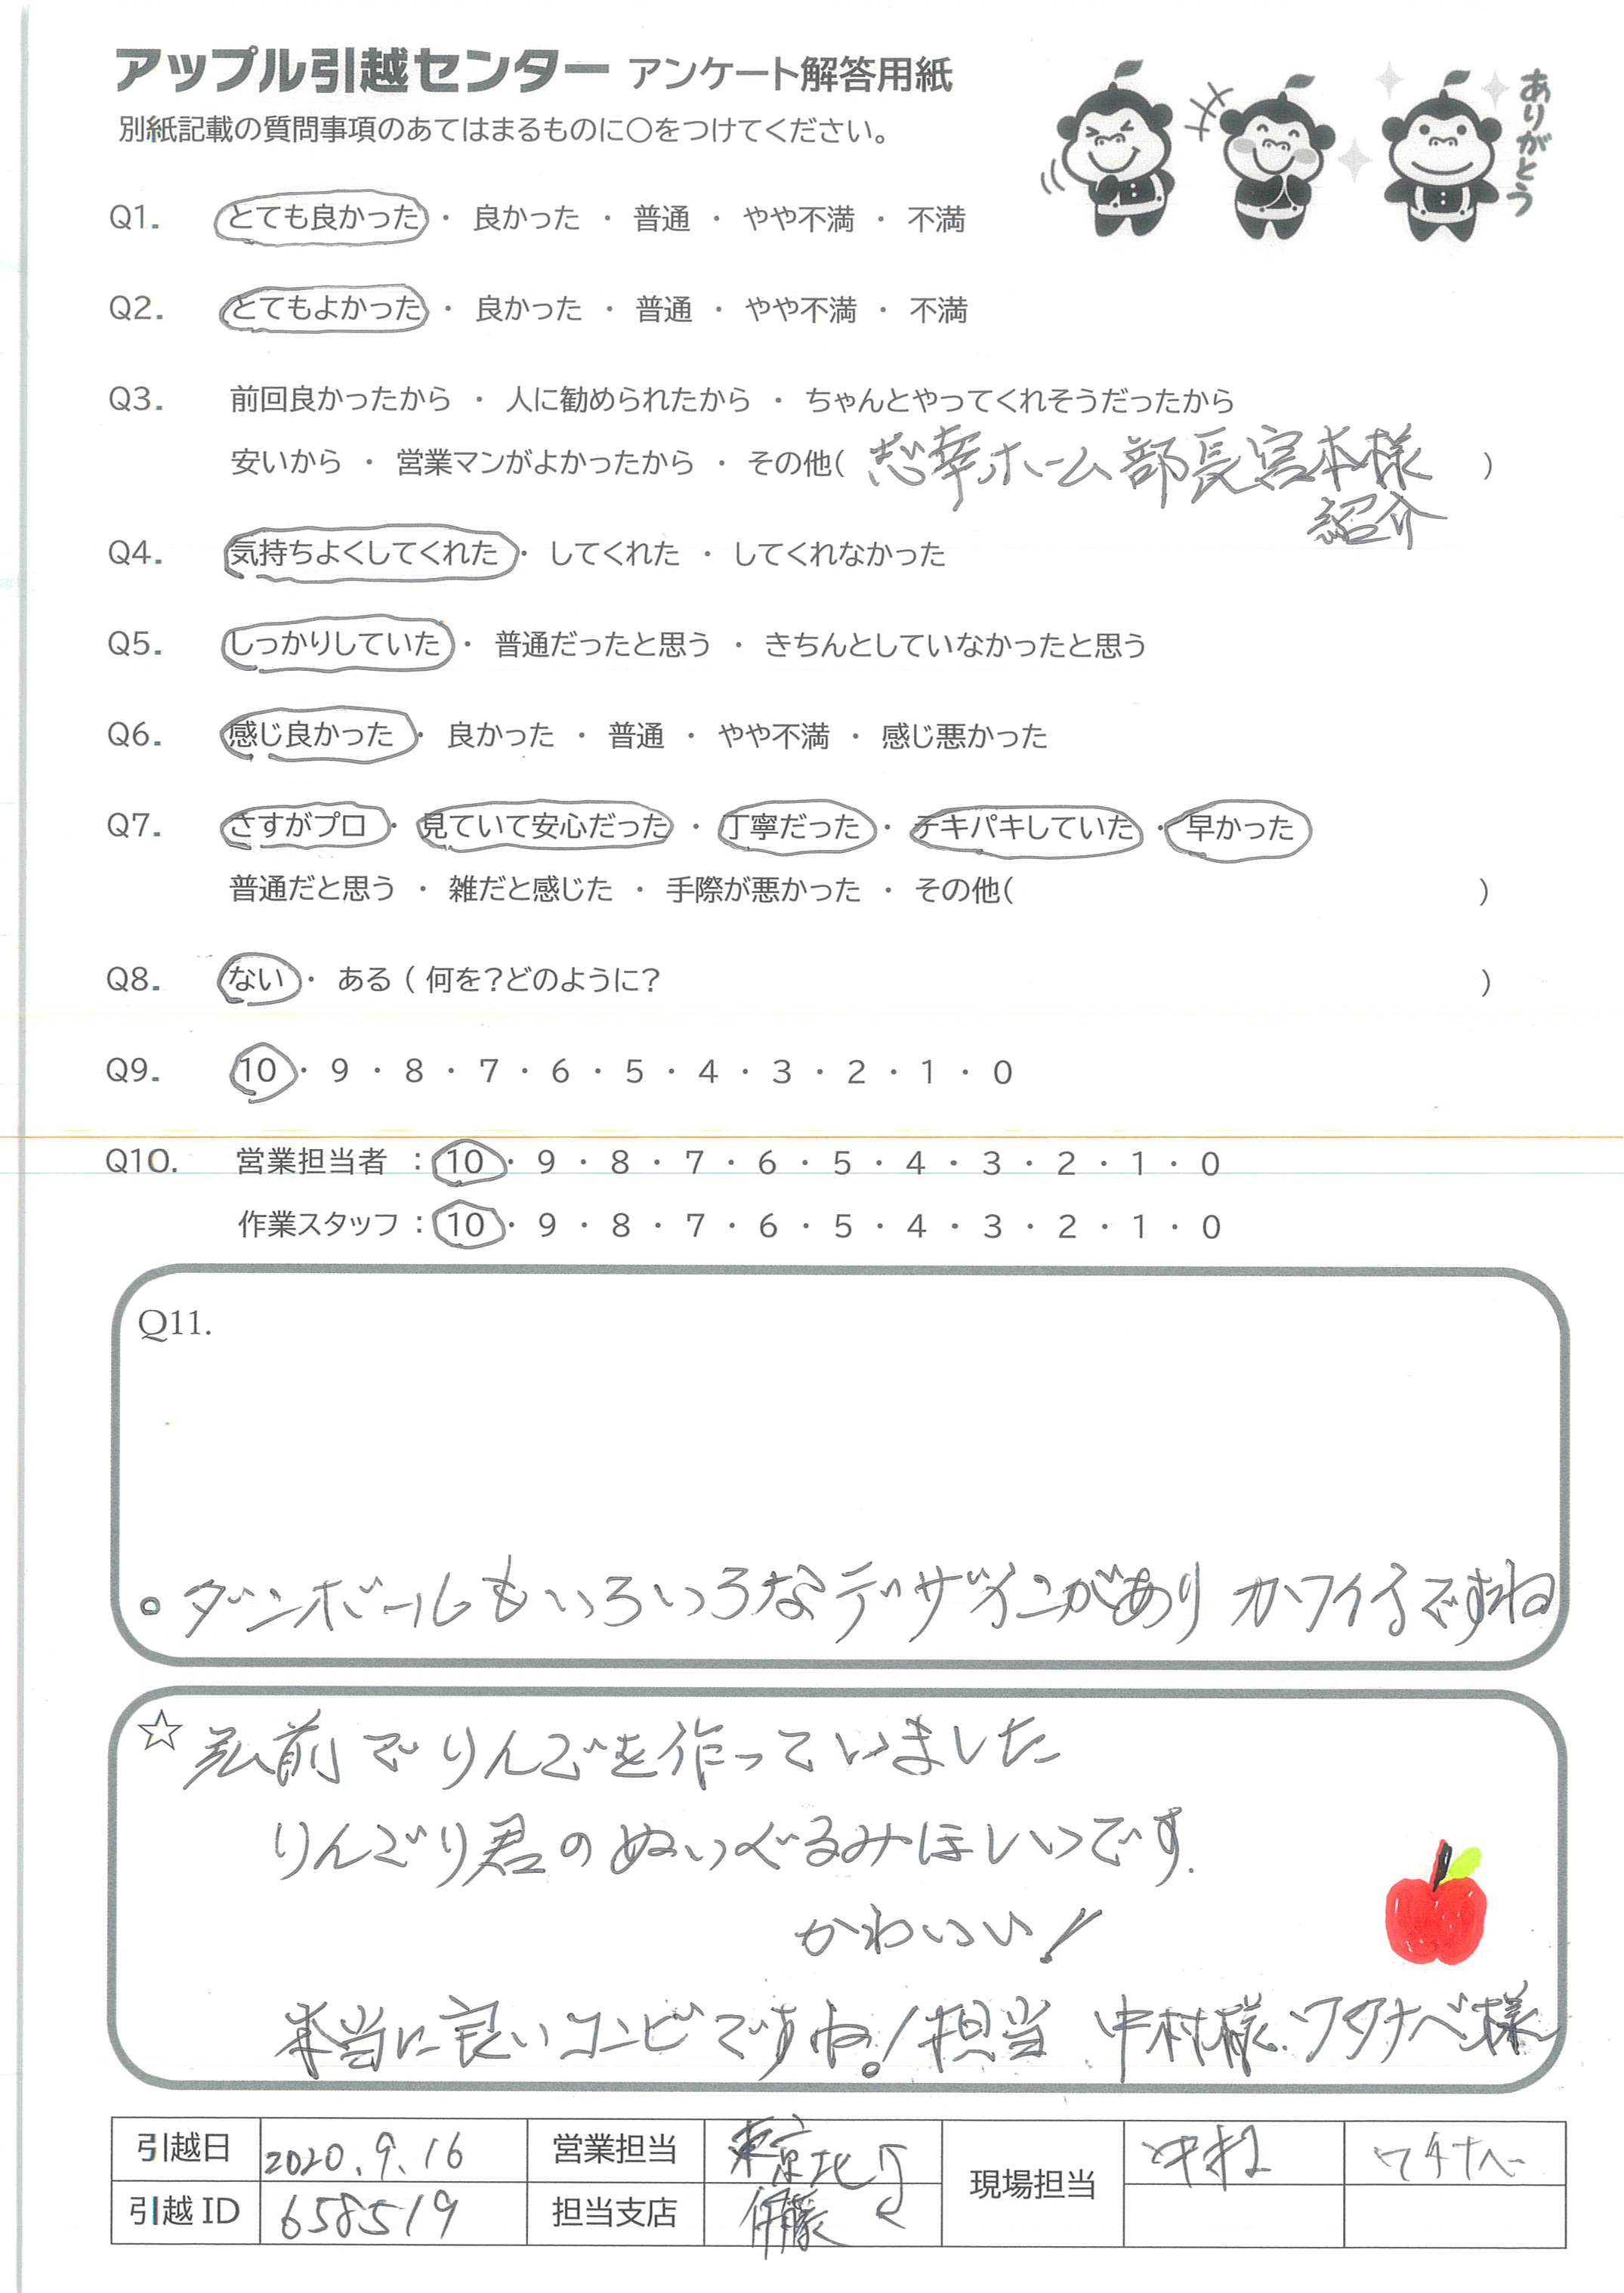 アップル引越センター アンケート解答用紙
別紙記載の質問事項のあてはまるものに○をつけてください。
ありがとう
Q1. とても良かった ・ 良かった ・ 普通 ・ やや不満 ・ 不満
Q2. とてもよかった ・ 良かった ・ 普通 ・ やや不満 ・ 不満
Q3. 前回良かったから ・ 人に勧められたから ・ ちゃんとやってくれそうだったから
安いから ・ 営業マンがよかったから ・ その他( 幸ホーム部長宮本様 )
紹介
Q4. 気持ちよくしてくれた ・ してくれた ・ してくれなかった
Q5. しっかりしていた ・ 普通だったと思う ・ きちんとしていなかったと思う
Q6. 感じ良かった ・ 良かった ・ 普通 ・ やや不満 ・ 感じ悪かった
Q7. さすがプロ ・ 見ていて安心だった ・ 丁寧だった ・ テキパキしていた ・ 早かった
普通だと思う ・ 雑だと感じた ・ 手際が悪かった ・ その他( )
Q8. ない ・ ある ( 何を?どのように? )
Q9. 10 ・ 9 ・ 8 ・ 7 ・ 6 ・ 5 ・ 4 ・ 3 ・ 2 ・ 1 ・ 0
Q10. 営業担当者 : 10 ・ 9 ・ 8 ・ 7 ・ 6 ・ 5 ・ 4 ・ 3 ・ 2 ・ 1 ・ 0
作業スタッフ : 10 ・ 9 ・ 8 ・ 7 ・ 6 ・ 5 ・ 4 ・ 3 ・ 2 ・ 1 ・ 0
Q11.
○ ダンボールもいろいろなデザインがあり カワイイですね
☆ 弘前でりんごを作っていました
りんごり君のぬいぐるみほしいです.
かわいい!
本当に良いコンビですね。! 担当 中村様.ワタナベ様
引越日 2020.9.16 営業担当 東京北 現場担当 中村 ワタナベ
引越ID 658519 担当支店 伊藤